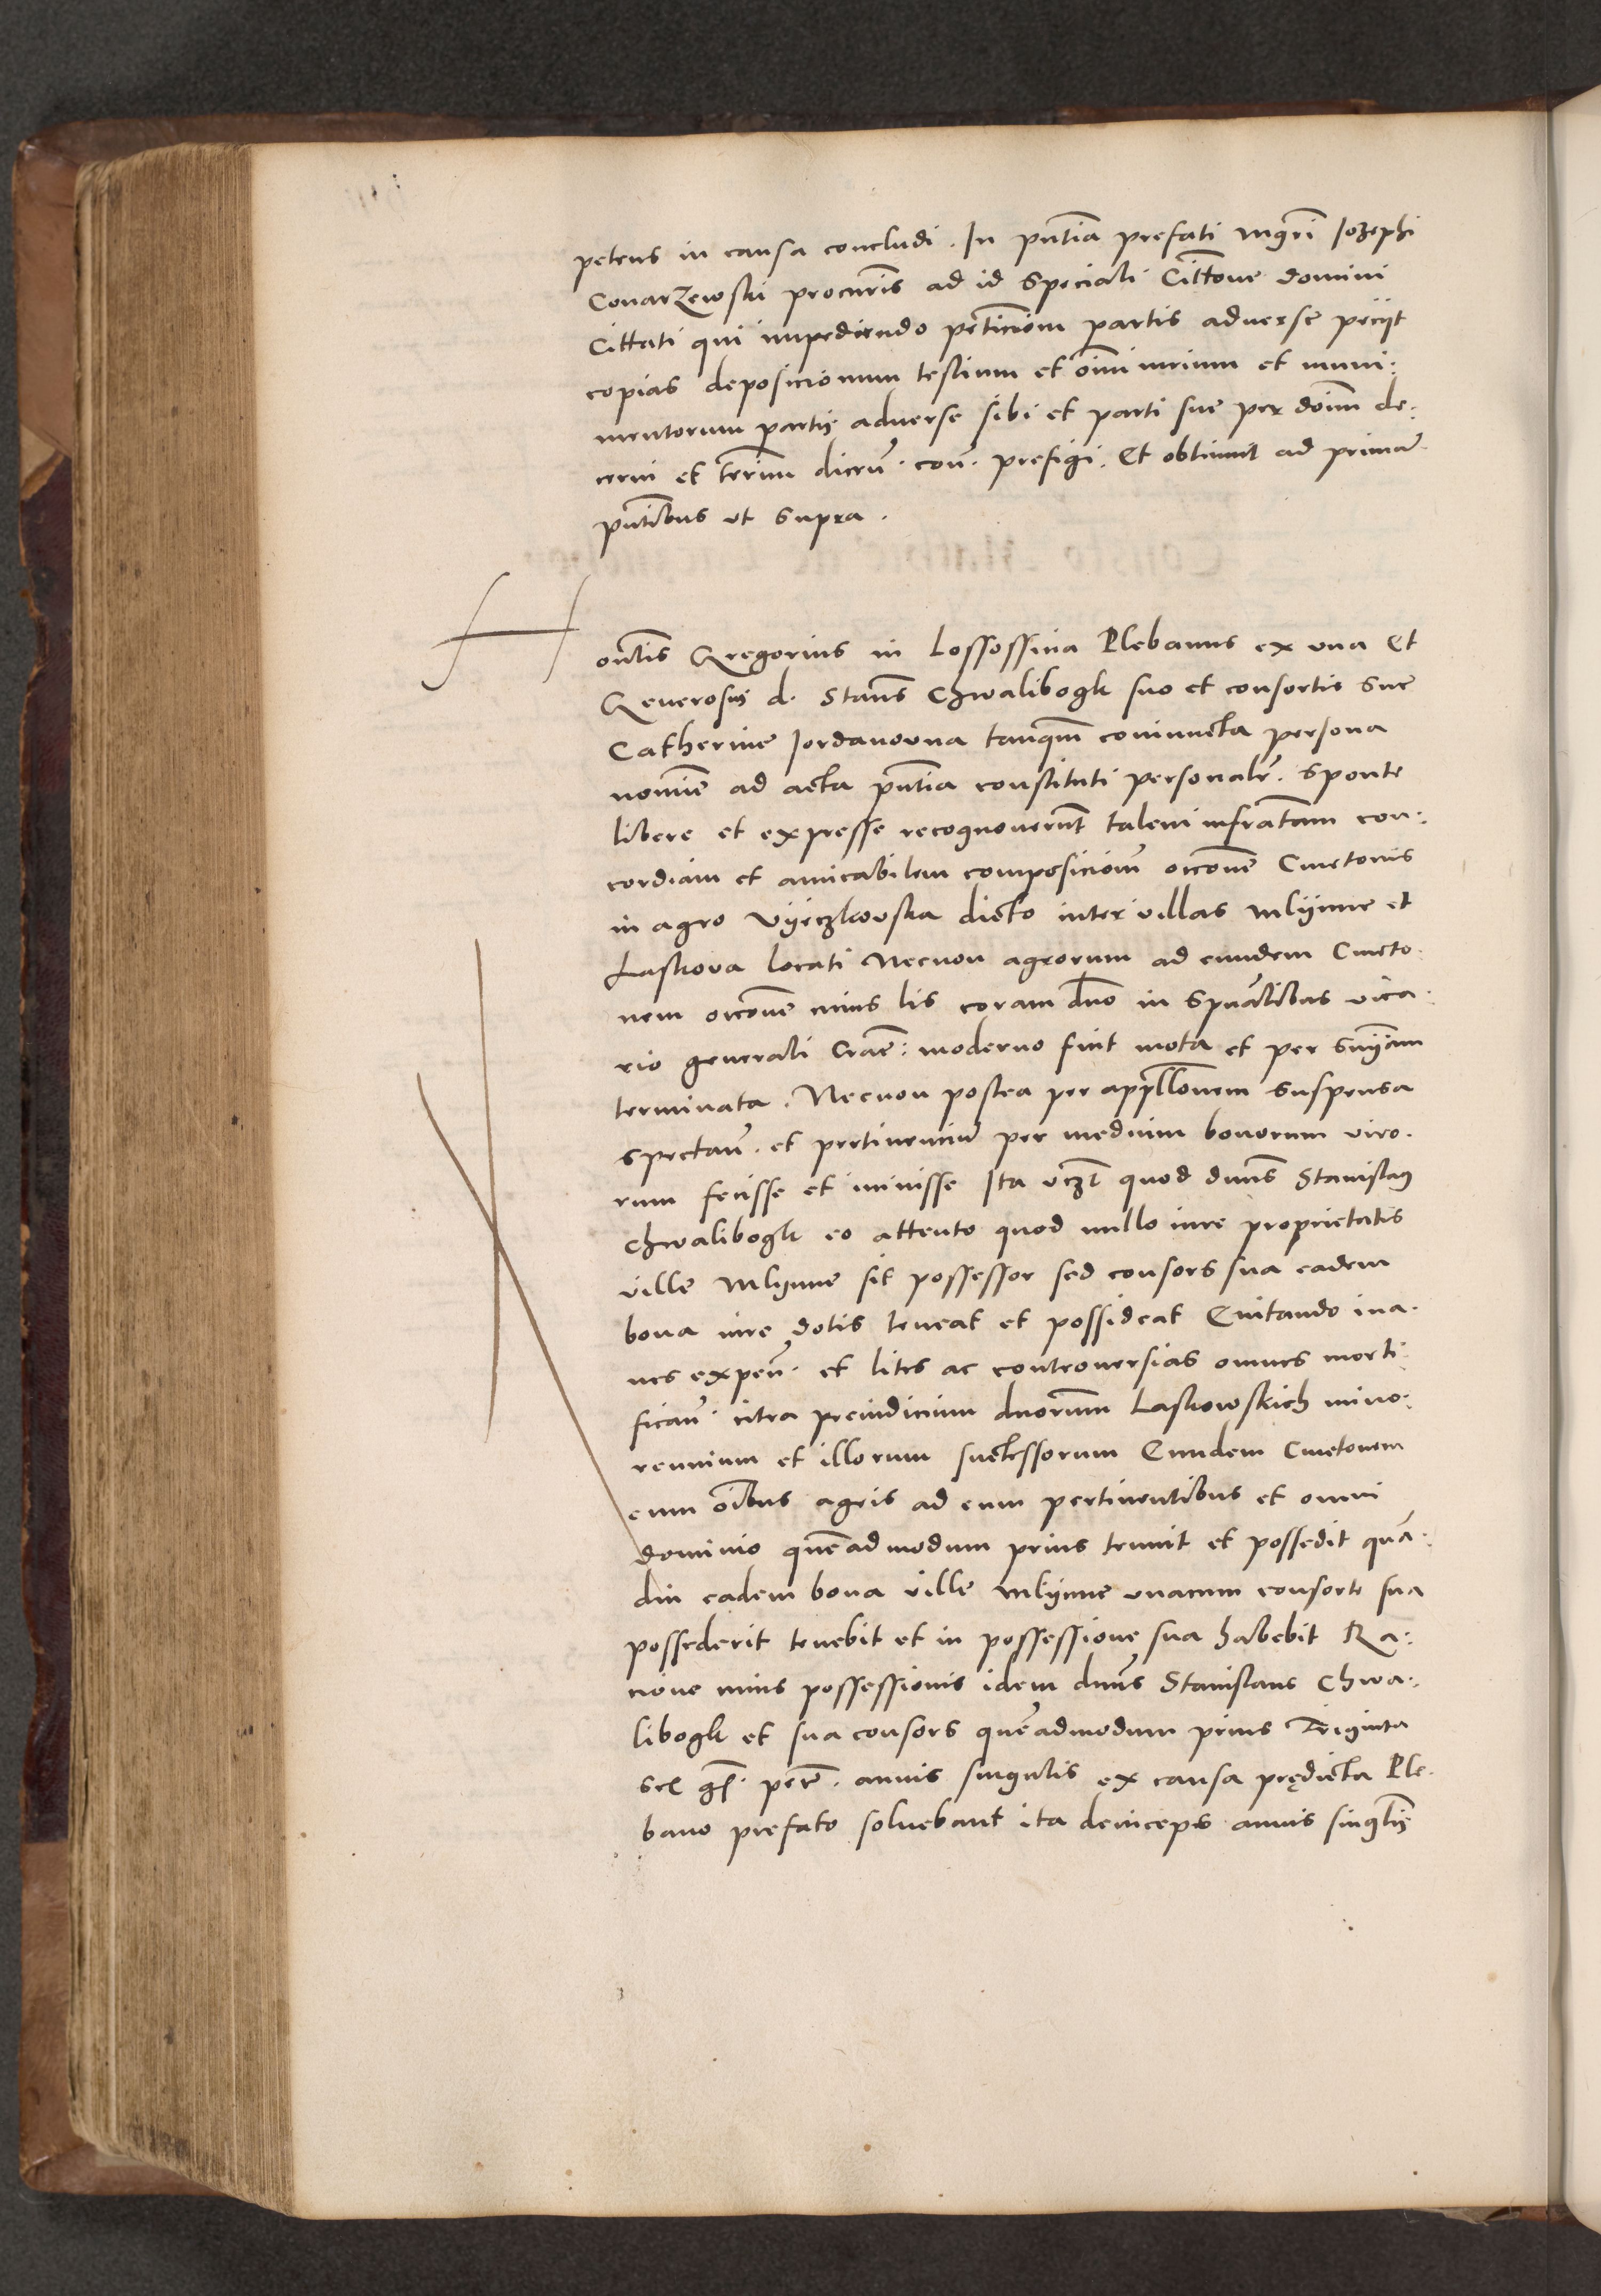 petens in causa concludi. In pntia prefati mgri Jozephi
Conarzewski procuris ad id speciali Cittone domini
Cittati qui impediendo peticiom partis adverse peciit
copias deposicionum testium et oim iurium et muni:
mentorum partis adverse sibi et parti sue per doim de:
cerni et terim dicen. con. prefigi. Et obtinuit ad primã
pntibus ut supra.
H
ontis Gregorius in Lossossina Plebanus ex una Et
Generosus d. Stans Chwalibogk suo et consortis sue
Catherine Jordanovna tanqm coniuncta persona
nomine ad acta pntia constituti personalr. sponte
libere et expresse recognoverunt talem infratam con:
cordiam et amicabilem composiciom occone Cmetonis
in agro Vyeczkovska dicto inter villas Mlynne et
Laskova locati Necnon agrorum ad eundem Cmeto:
nem occone cuius lis coram dno in Spualibus vica:
rio generali Crac: moderno fuit mota et per snyam
terminata. Necnon postea per appllonem suspensa
spectan. et pertinenciu per medium bonorum viro.
rum fecisse et inivisse Ita vczt quod dnus Stanislaus
Chwalibogk eo attento quod nullo iure proprietatis
ville Mlynne sit possessor sed consors sua eadem
bona iure dotis teneat et possideat Evitando ina.
nes expen. et lites ac controversias omnes morti:
fican. citra preiudicium dnorum Laskowskich mino:
rennium et illorum successorum Eundem Cmetonem
cum oibus agris ad eum pertinentibus et omni
dominio quemadmodum prius tenuit et possedit quã:
diu eadem bona ville Mlynne unacum consorte sua
possederit tenebit et in possessione sua habebit Ra:
cione cuius possessionis idem dnus Stanislaus Chwa:
libogk et sua consors quemadmodum prius Triginta
scl gl. per. annis singulis ex causa prędicta Ple:
bano prefato solvebant ita deinceps annis singlis